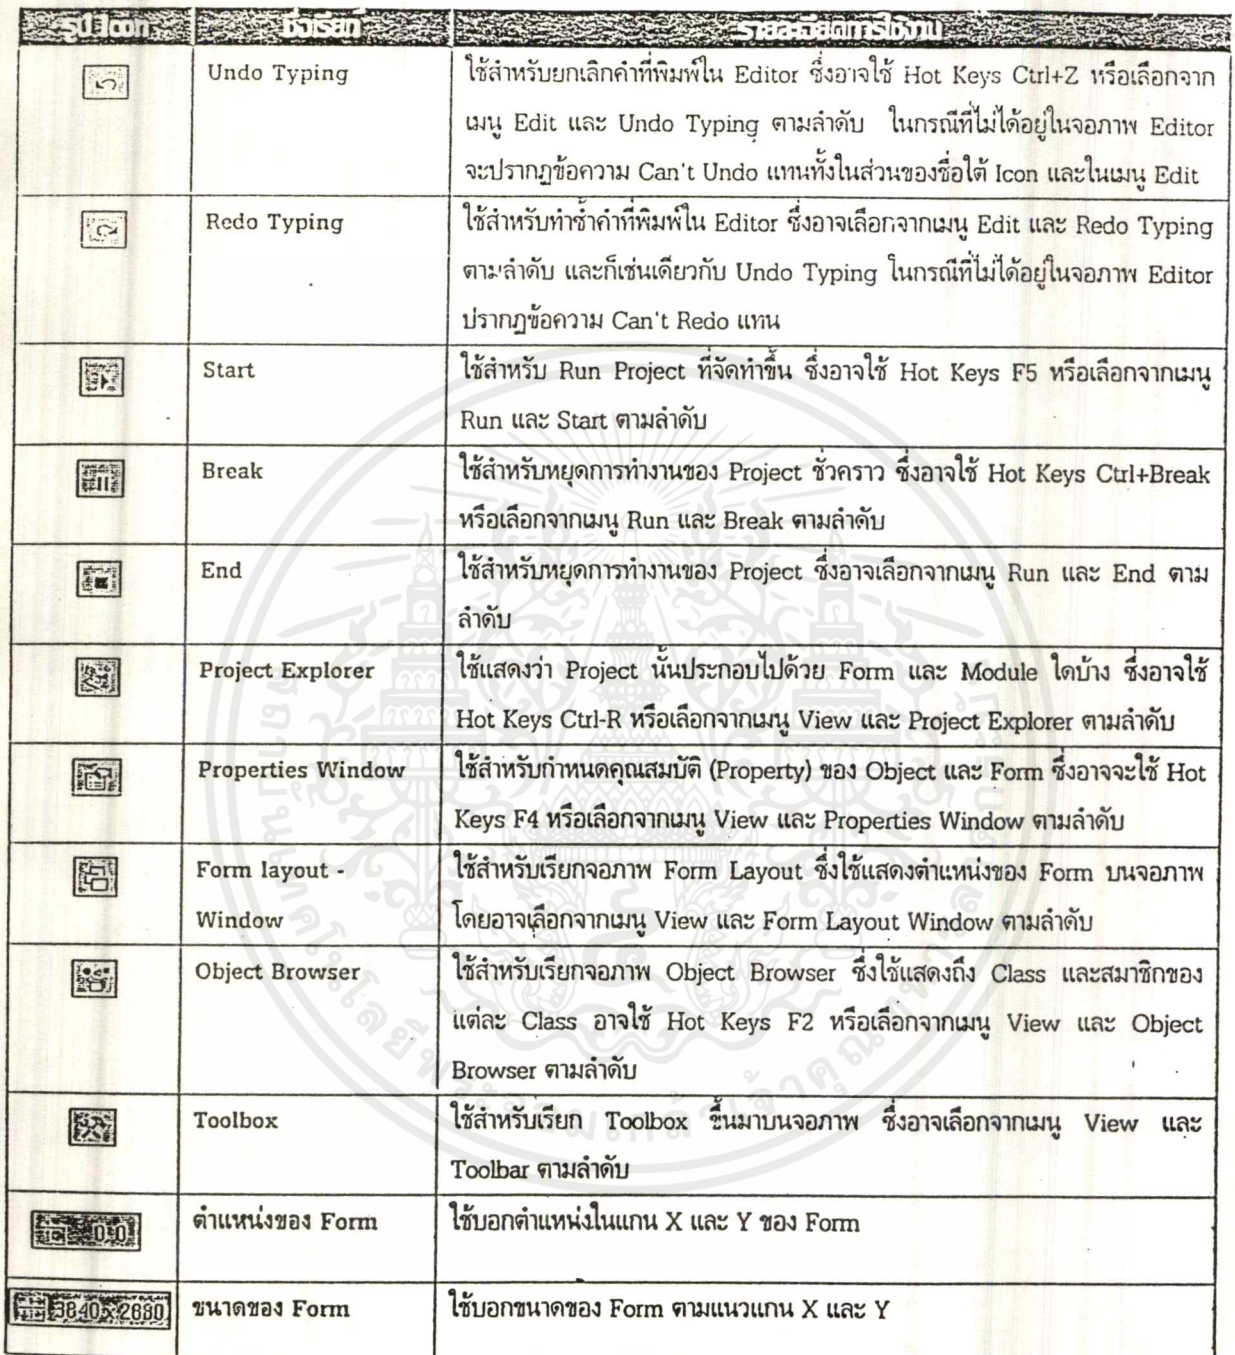 รูป Icon ชื่อเรียก รายละเอียดการใช้งาน
Undo Typing ใช้สำหรับยกเลิกคำที่พิมพ์ใน Editor ซึ่งอาจใช้ Hot Keys Ctrl+Z หรือเลือกจาก
เมนู Edit และ Undo Typing ตามลำดับ ในกรณีที่ไม่ได้อยู่ในจอภาพ Editor
จะปรากฏข้อความ Can't Undo แทนทั้งในส่วนของชื่อใต้ Icon และในเมนู Edit
Redo Typing ใช้สำหรับทำซ้ำคำที่พิมพ์ใน Editor ซึ่งอาจเลือกจากเมนู Edit และ Redo Typing
ตามลำดับ และก็เช่นเดียวกับ Undo Typing ในกรณีที่ไม่ได้อยู่ในจอภาพ Editor
ปรากฏข้อความ Can't Redo แทน
Start ใช้สำหรับ Run Project ที่จัดทำขึ้น ซึ่งอาจใช้ Hot Keys F5 หรือเลือกจากเมนู
Run และ Start ตามลำดับ
Break ใช้สำหรับหยุดการทำงานของ Project ชั่วคราว ซึ่งอาจใช้ Hot Keys Ctrl+Break
หรือเลือกจากเมนู Run และ Break ตามลำดับ
End ใช้สำหรับหยุดการทำงานของ Project ซึ่งอาจเลือกจากเมนู Run และ End ตาม
ลำดับ
Project Explorer ใช้แสดงว่า Project นั้นประกอบไปด้วย Form และ Module ใดบ้าง ซึ่งอาจใช้
Hot Keys Ctrl-R หรือเลือกจากเมนู View และ Project Explorer ตามลำดับ
Properties Window ใช้สำหรับกำหนดคุณสมบัติ (Property) ของ Object และ Form ซึ่งอาจจะใช้ Hot
Keys F4 หรือเลือกจากเมนู View และ Properties Window ตามลำดับ
Form layout - ใช้สำหรับเรียกจอภาพ Form Layout ซึ่งใช้แสดงตำแหน่งของ Form บนจอภาพ
Window โดยอาจเลือกจากเมนู View และ Form Layout Window ตามลำดับ
Object Browser ใช้สำหรับเรียกจอภาพ Object Browser ซึ่งใช้แสดงถึง Class และสมาชิกของ
แต่ละ Class อาจใช้ Hot Keys F2 หรือเลือกจากเมนู View และ Object
Browser ตามลำดับ
Toolbox ใช้สำหรับเรียก Toolbox ขึ้นมาบนจอภาพ ซึ่งอาจเลือกจากเมนู View และ
Toolbar ตามลำดับ
0,0 ตำแหน่งของ Form ใช้บอกตำแหน่งในแกน X และ Y ของ Form
3840 x 2880 ขนาดของ Form ใช้บอกขนาดของ Form ตามแนวแกน X และ Y
สถาบันเทคโนโลยีพระจอมเกล้าเจ้าคุณทหารลาดกระบัง